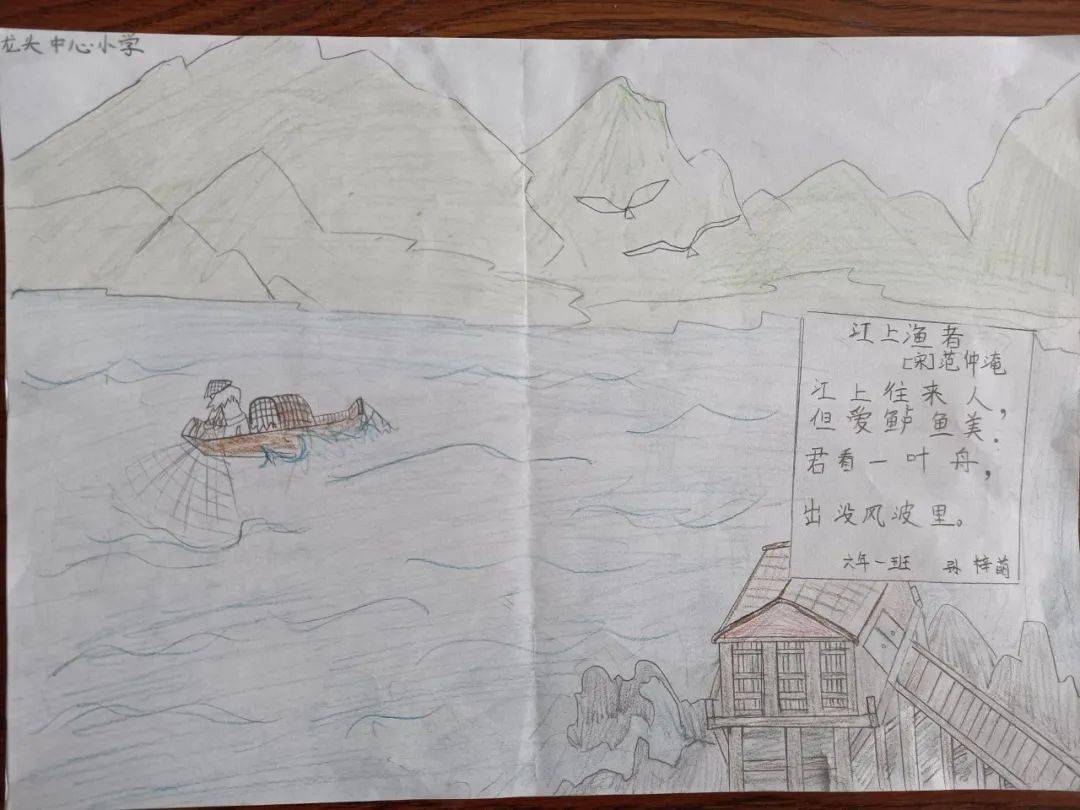 龙头中心小学
江上渔者
[宋]范仲淹
江上往来人，
但爱鲈鱼美。
君看一叶舟，
出没风波里。
六年一班 孙梓萌